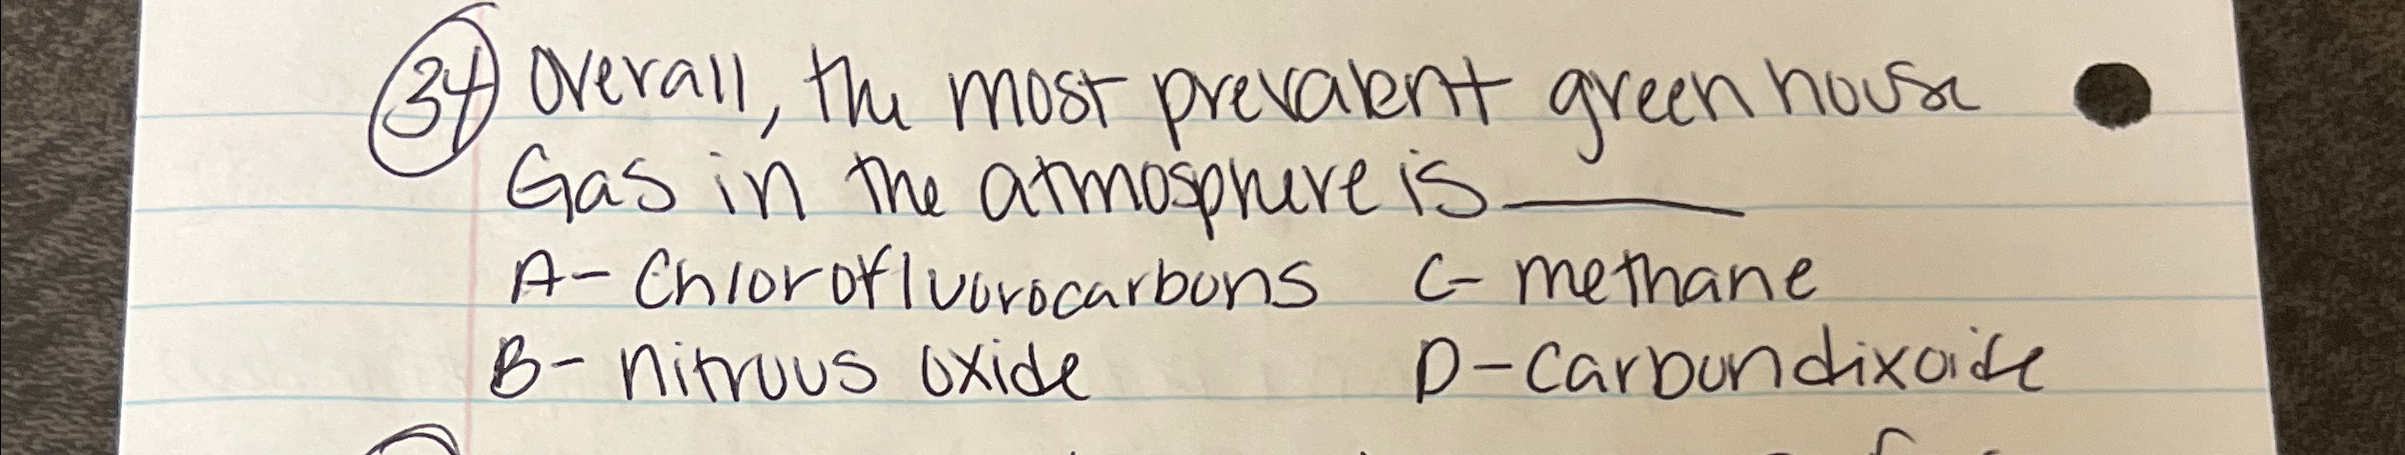 34 Overall, the most prevalent green house
Gas in the atmosphere is ____
A- Chlorofluorocarbons C- methane
B- nitruus oxide D- Carbondixoide